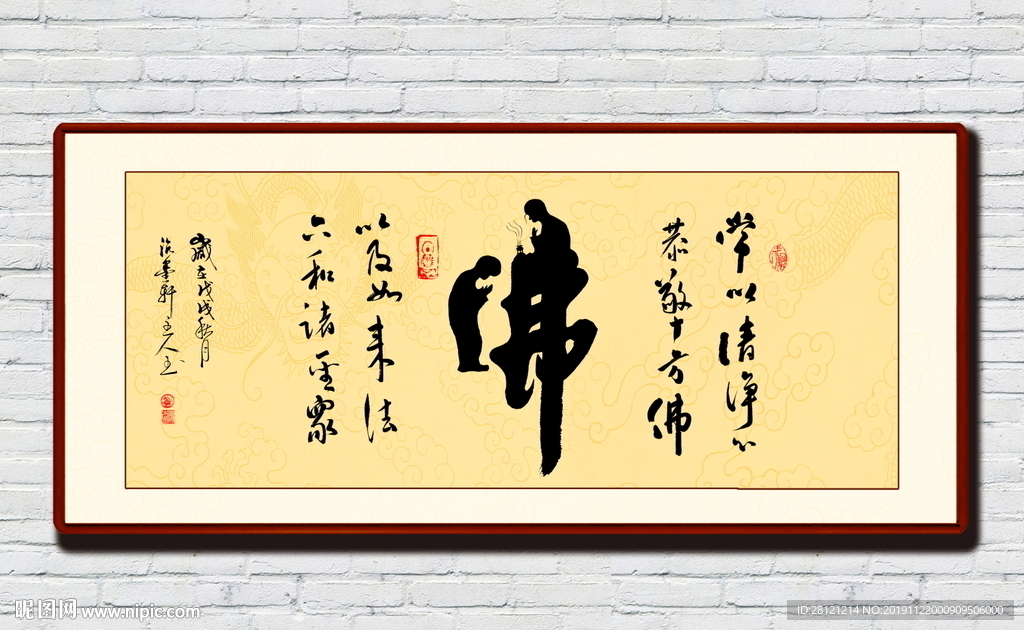 常以清净心
恭敬十方佛
佛
以及如来法
六和诸圣众
岁在戊戌秋月
轩主人玉
昵图网 www.nipic.com
ID:28121214 NO:20191122000909506000